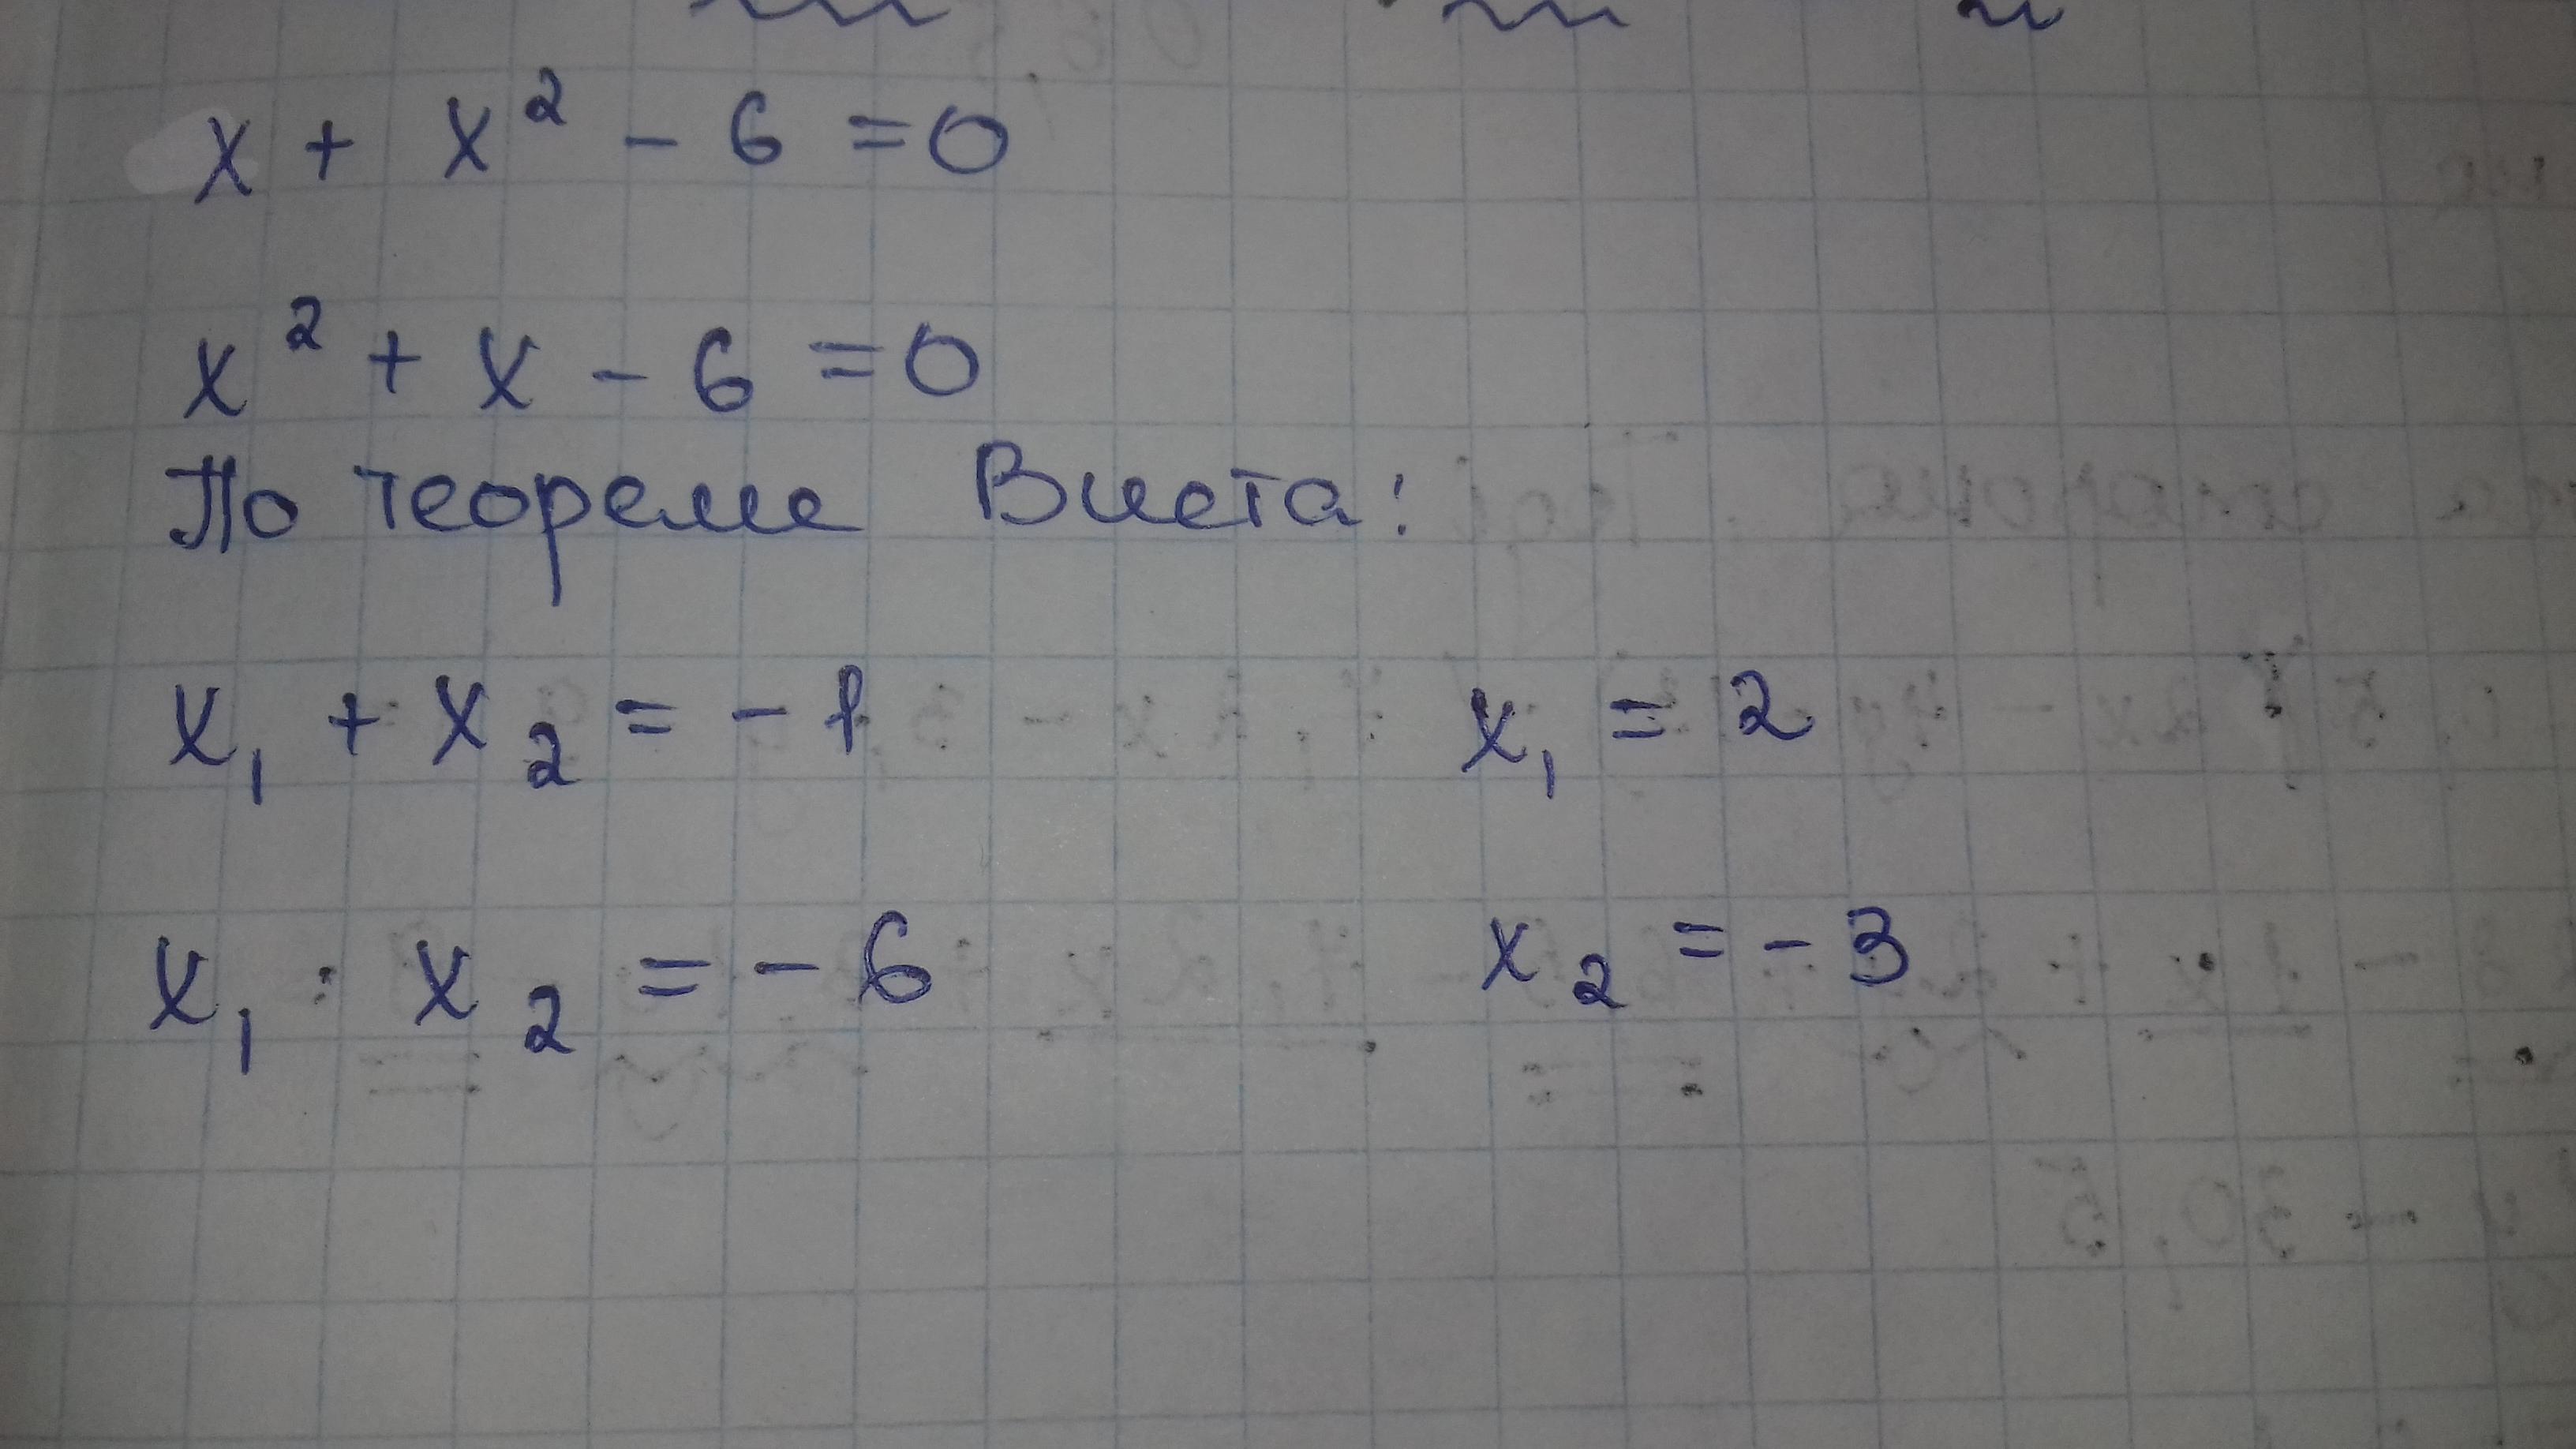 x + x² - 6 = 0
x² + x - 6 = 0
По теореме Виета:
x₁ + x₂ = -1 x₁ = 2
x₁ · x₂ = -6 x₂ = -3